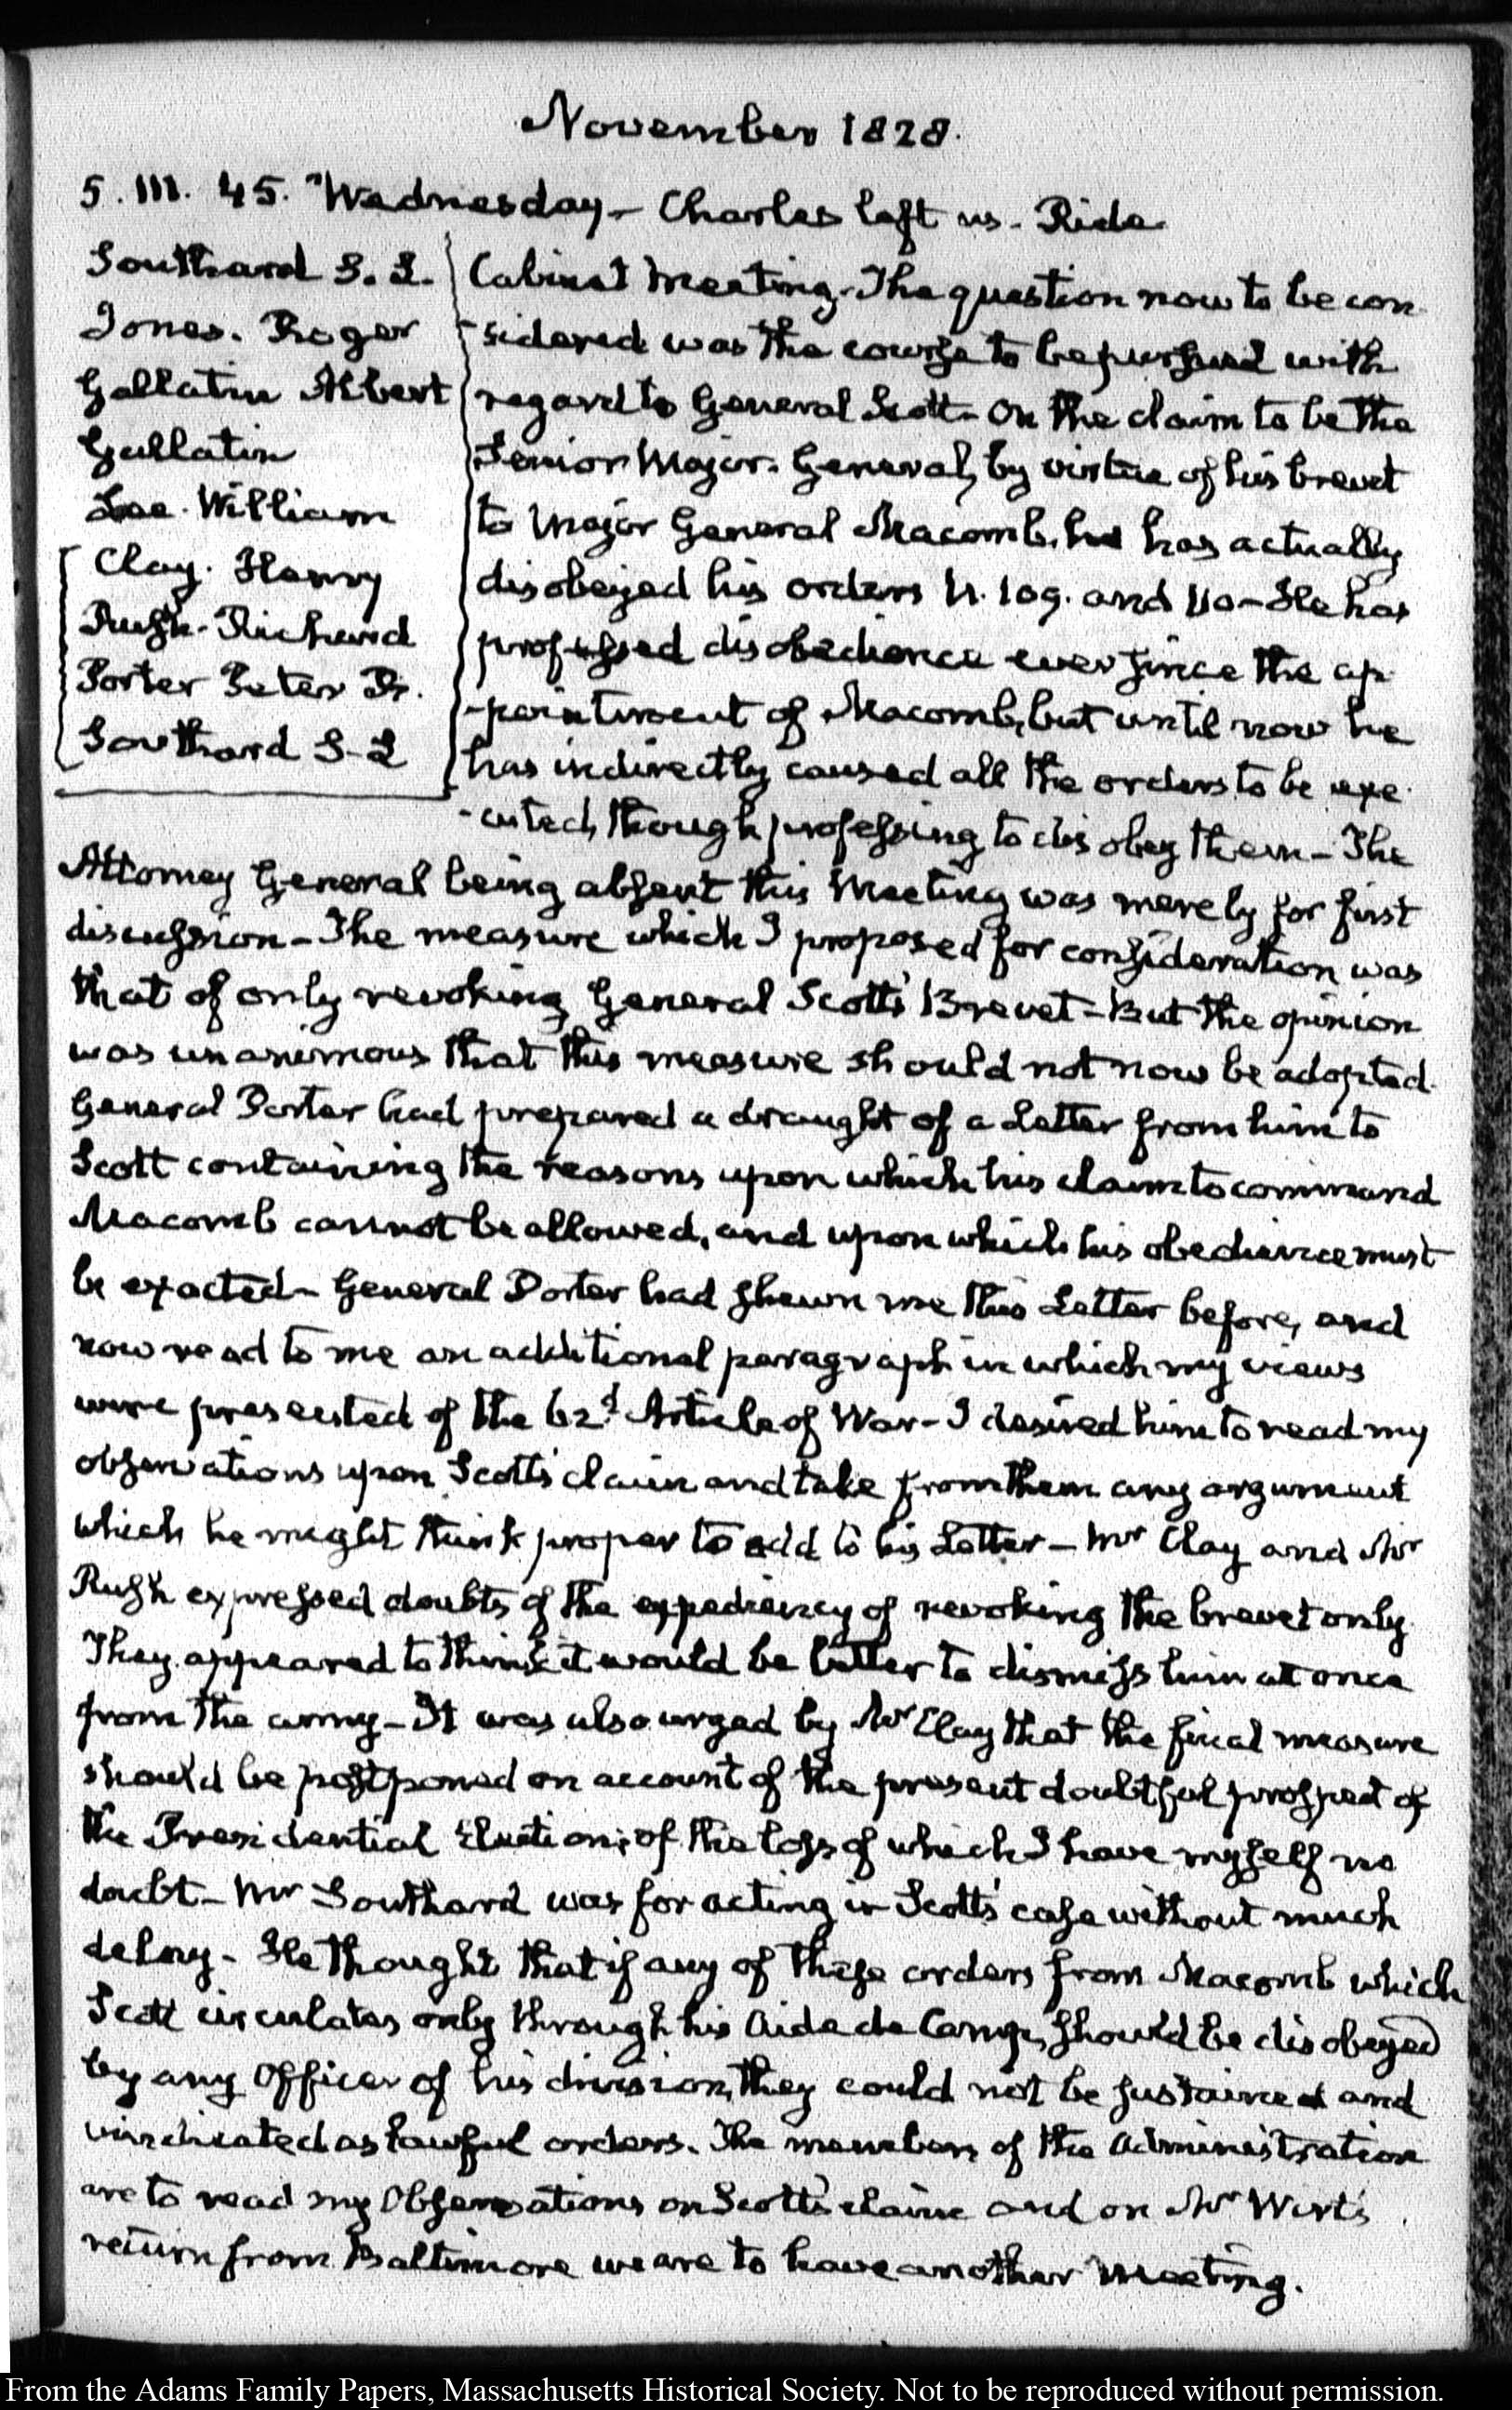 November 1828.
5. III. 45. Wednesday - Charles left us - Ride
Southard S. L.
Jones. Roger
Gallatin Albert
Gallatin
Lee. William
Clay. Henry
Rush. Richard
Porter Peter B.
Southard S-L
Cabinet Meeting. The question now to be con
-sidered was the course to be pursued with
regard to General Scott - On the claim to be the
Senior Major. General, by virtue of his brevet
to Major General Macomb, he has actually
disobeyed his orders N. 109. and 110 - He has
professed disobedience ever since the ap
-pointment of Macomb, but until now he
has indirectly caused all the orders to be exe
-cuted, though professing to disobey them - The
Attorney General being absent this Meeting was merely for first
discussion - The measure which I proposed for consideration was
that of only revoking General Scott's Brevet - But the opinion
was unanimous that this measure should not now be adopted.
General Porter had prepared a draught of a Letter from him to
Scott containing the reasons upon which his claim to command
Macomb cannot be allowed, and upon which his obedience must
be exacted - General Porter had shewn me this Letter before, and
now read to me an additional paragraph in which my views
were presented of the 62d Article of War - I desired him to read my
observations upon Scott's claim and take from them any argument
which he might think proper to add to his Letter - Mr Clay and Mr
Rush expressed doubts of the expediency of revoking the brevet only.
They appeared to think it would be better to dismiss him at once
from the army - It was also urged by Mr Clay that the final measure
should be postponed on account of the present doubtful prospect of
the Presidential Election; of the loss of which I have myself no
doubt - Mr Southard was for acting in Scott's case without much
delay - He thought that if any of these orders from Macomb which
Scott circulates only through his Aide de Camp, should be disobeyed
by any Officer of his division, they could not be sustained and
vindicated as lawful orders. The members of the Administration
are to read my Observations on Scott's claim and on Mr Wirt's
return from Baltimore we are to have another Meeting.
From the Adams Family Papers, Massachusetts Historical Society. Not to be reproduced without permission.